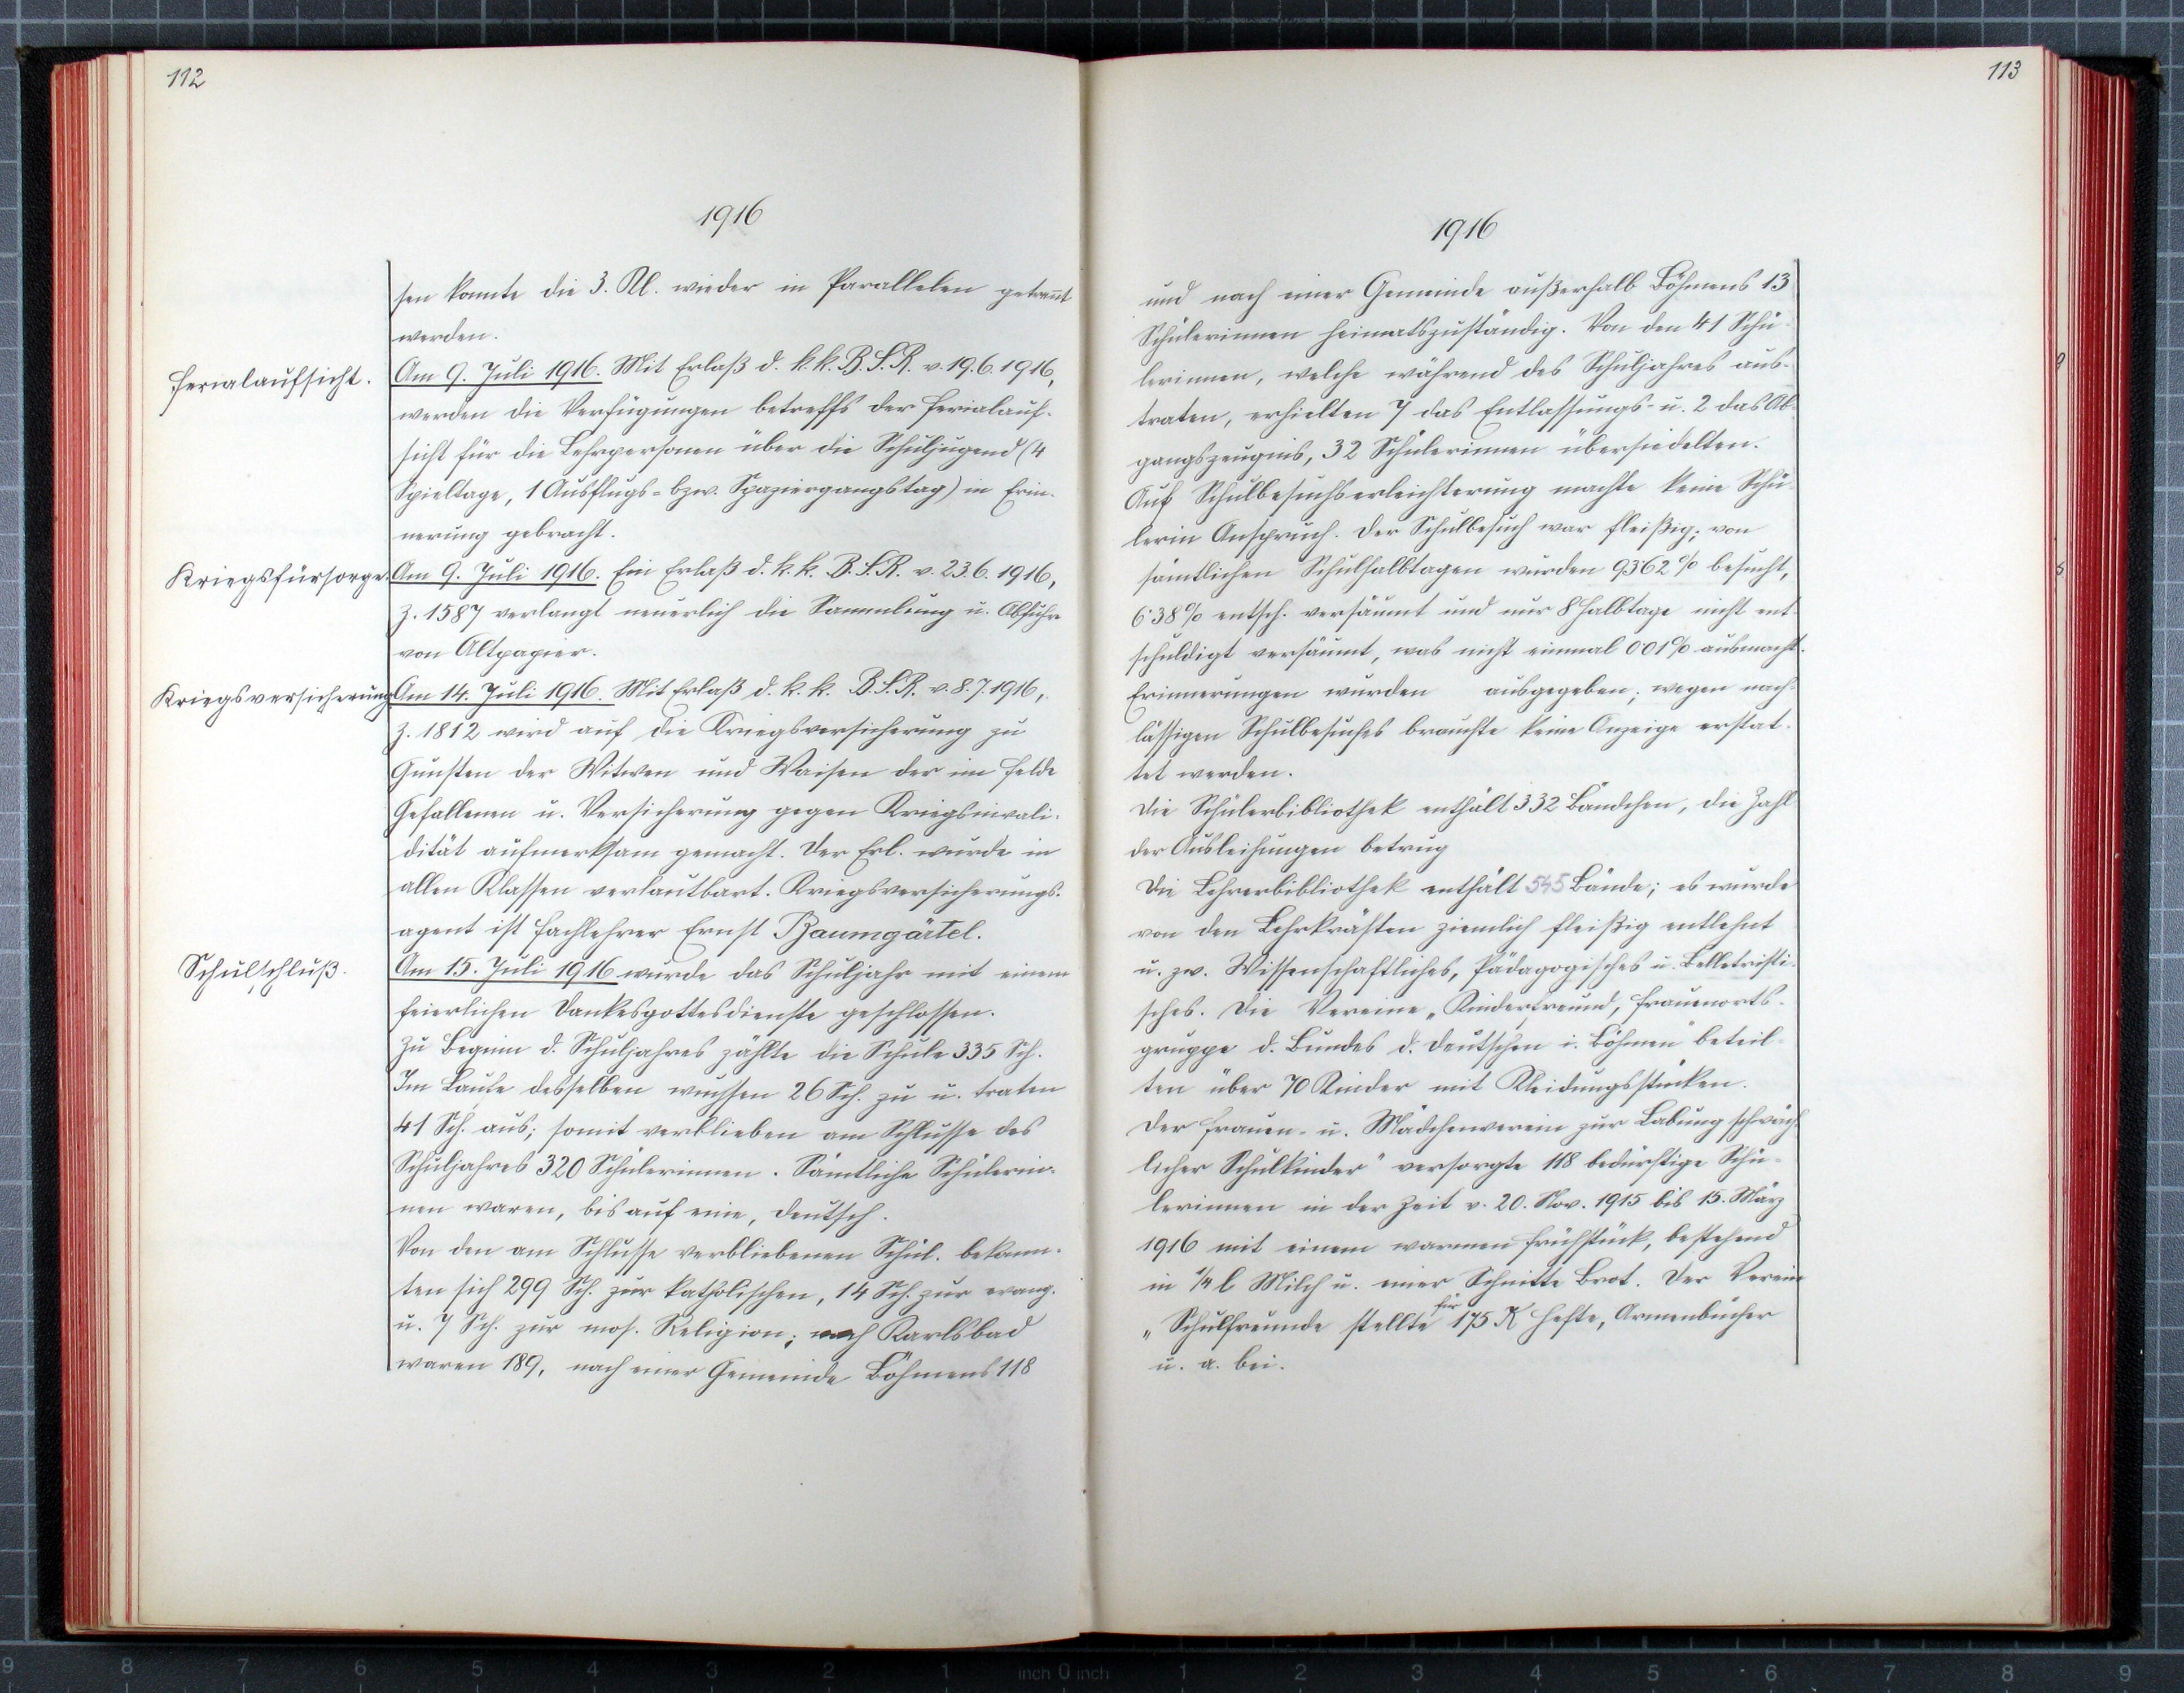 112
1916
sen konnte die 3. Kl. wieder in Parallelen getrennt
werden.
Ferialaufsicht.
Am 9. Juli 1916. Mit Erlaß d. k. k. B.S.R. v. 19.6.1916,
werden die Verfügungen betreffs der Ferialauf-
sicht für die Lehrpersonen über die Schuljugend (4
Spieltage, 1 Ausflugs- bzw. Spaziergangstag) in Erin-
nerung gebracht.
Kriegsfürsorge.
Am 9. Juli 1916. Ein Erlaß d. k. k. B.S.R. v. 23.6.1916,
Z. 1587 verlangt neuerlich die Sammlung u. Abfuhr
von Altpapier.
Kriegsversicherung
Am 14. Juli 1916. Mit Erlaß d. k. k. B.S.R. v. 8.7.1916,
Z. 1812 wird auf die Kriegsversicherung zu
Gunsten der Witwen und Waisen der im Felde
Gefallenen u. Versicherung gegen Kriegsinvali-
dität aufmerksam gemacht. Der Erl. wurde in
allen Klassen verlautbart. Kriegsversicherungs-
agent ist Fachlehrer Ernst Baumgärtel.
Schulschluß.
Am 15. Juli 1916 wurde das Schuljahr mit einem
feierlichen Dankesgottesdienste geschlossen.
Zu Beginn d. Schuljahres zählte die Schule 335 Sch.
Im Laufe desselben wuchsen 26 Sch. zu u. traten
41 Sch. aus; somit verblieben am Schlusse des
Schuljahres 320 Schülerinnen. Sämtliche Schülerin-
nen waren, bis auf eine, deutsch.
Von den am Schlusse verbliebenen Schül. bekann-
ten sich 299 Sch. zur katholischen, 14 Sch. zur evang.
u. 7 Sch. zur mos. Religion; nach Karlsbad
waren 189, nach einer Gemeinde Böhmens 118
113
1916
und nach einer Gemeinde außerhalb Böhmens 13
Schülerinnen heimatszuständig. Von den 41 Schü-
lerinnen, welche während des Schuljahres aus-
traten, erhielten 7 das Entlassungs- u. 2 das Ab-
gangszeugnis, 32 Schülerinnen übersiedelten.
Auf Schulbesuchserleichterung machte keine Schü-
lerin Anspruch. Der Schulbesuch war fleißig; von
sämtlichen Schulhalbtagen wurden 93˙62% besucht,
6˙38% entsch. versäumt und nur 8 Halbtage nicht ent-
schuldigt versäumt, was nicht einmal 0˙01% ausmacht.
Erinnerungen wurden ausgegeben; wegen nach-
lässigen Schulbesuches brauchte keine Anzeige erstat-
tet werden.
Die Schülerbibliothek enthält 332 Bändchen, die Zahl
der Ausleihungen betrug
Die Lehrerbibliothek enthält 545 Bände; es wurde
von den Lehrkräften ziemlich fleißig entlehnt
u. zw. Wissenschaftliches, Pädagogisches u. Belletristi-
sches. Die Vereine „Kinderfreund, Frauenorts-
gruppe d. Bundes d. Deutschen i. Böhmen" beteil-
ten über 70 Kinder mit Kleidungsstücken.
Der Frauen- u. Mädchenverein zur Labung schwäch-
licher Schulkinder" versorgte 118 bedürftige Schü-
lerinnen in der Zeit v. 20. Nov. 1915 bis 15. März
1916 mit einem warmen Frühstück, bestehend
in 1/4 l Milch u. einer Schnitte Brot. Der Verein
„Schulfreunde stellte für 175 K Hefte, Armenbücher
u. a. bei.
9 8 7 6 5 4 3 2 1 inch 0 inch 1 2 3 4 5 6 7 8 9